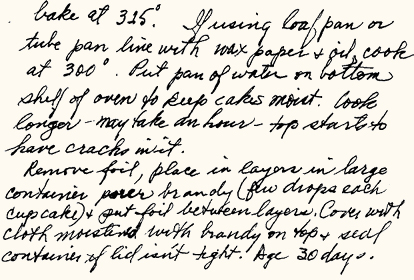 bake at 325°. If using loaf pan or
tube pan line with wax paper & oil, cook
at 300°. Put pan of water on bottom
shelf of oven to keep cakes moist. Cook
longer - may take an hour - top starts to
have cracks in it.
Remove foil, place in layers in large
container pour brandy (few drops each
cupcake) & put foil between layers. Cover with
cloth moistened with brandy on top & seal
container if lid isn't tight. Age 30 days.